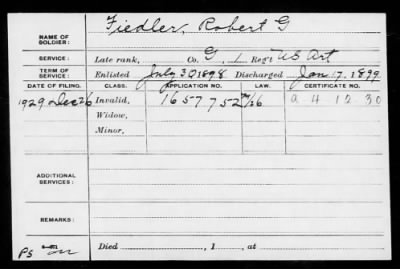 NAME OF SOLDIER: Fiedler, Robert G
SERVICE: Late rank, Co. G, 1 Reg't US Art
TERM OF SERVICE: Enlisted July 30 1898 Discharged Jan 17, 1899
DATE OF FILING. CLASS. APPLICATION NO. LAW. CERTIFICATE NO.
1929 Dec 26 Invalid, 1657752 A 4 12 30
Widow,
Minor,
ADDITIONAL SERVICES:
REMARKS:
PS Died , 1 , at